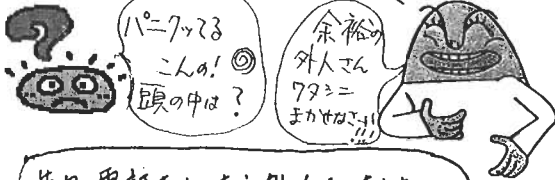 パニクッてる
こんの!
頭の中は?
余裕の
外人さん
ワタシニ
まかせなさい!!!